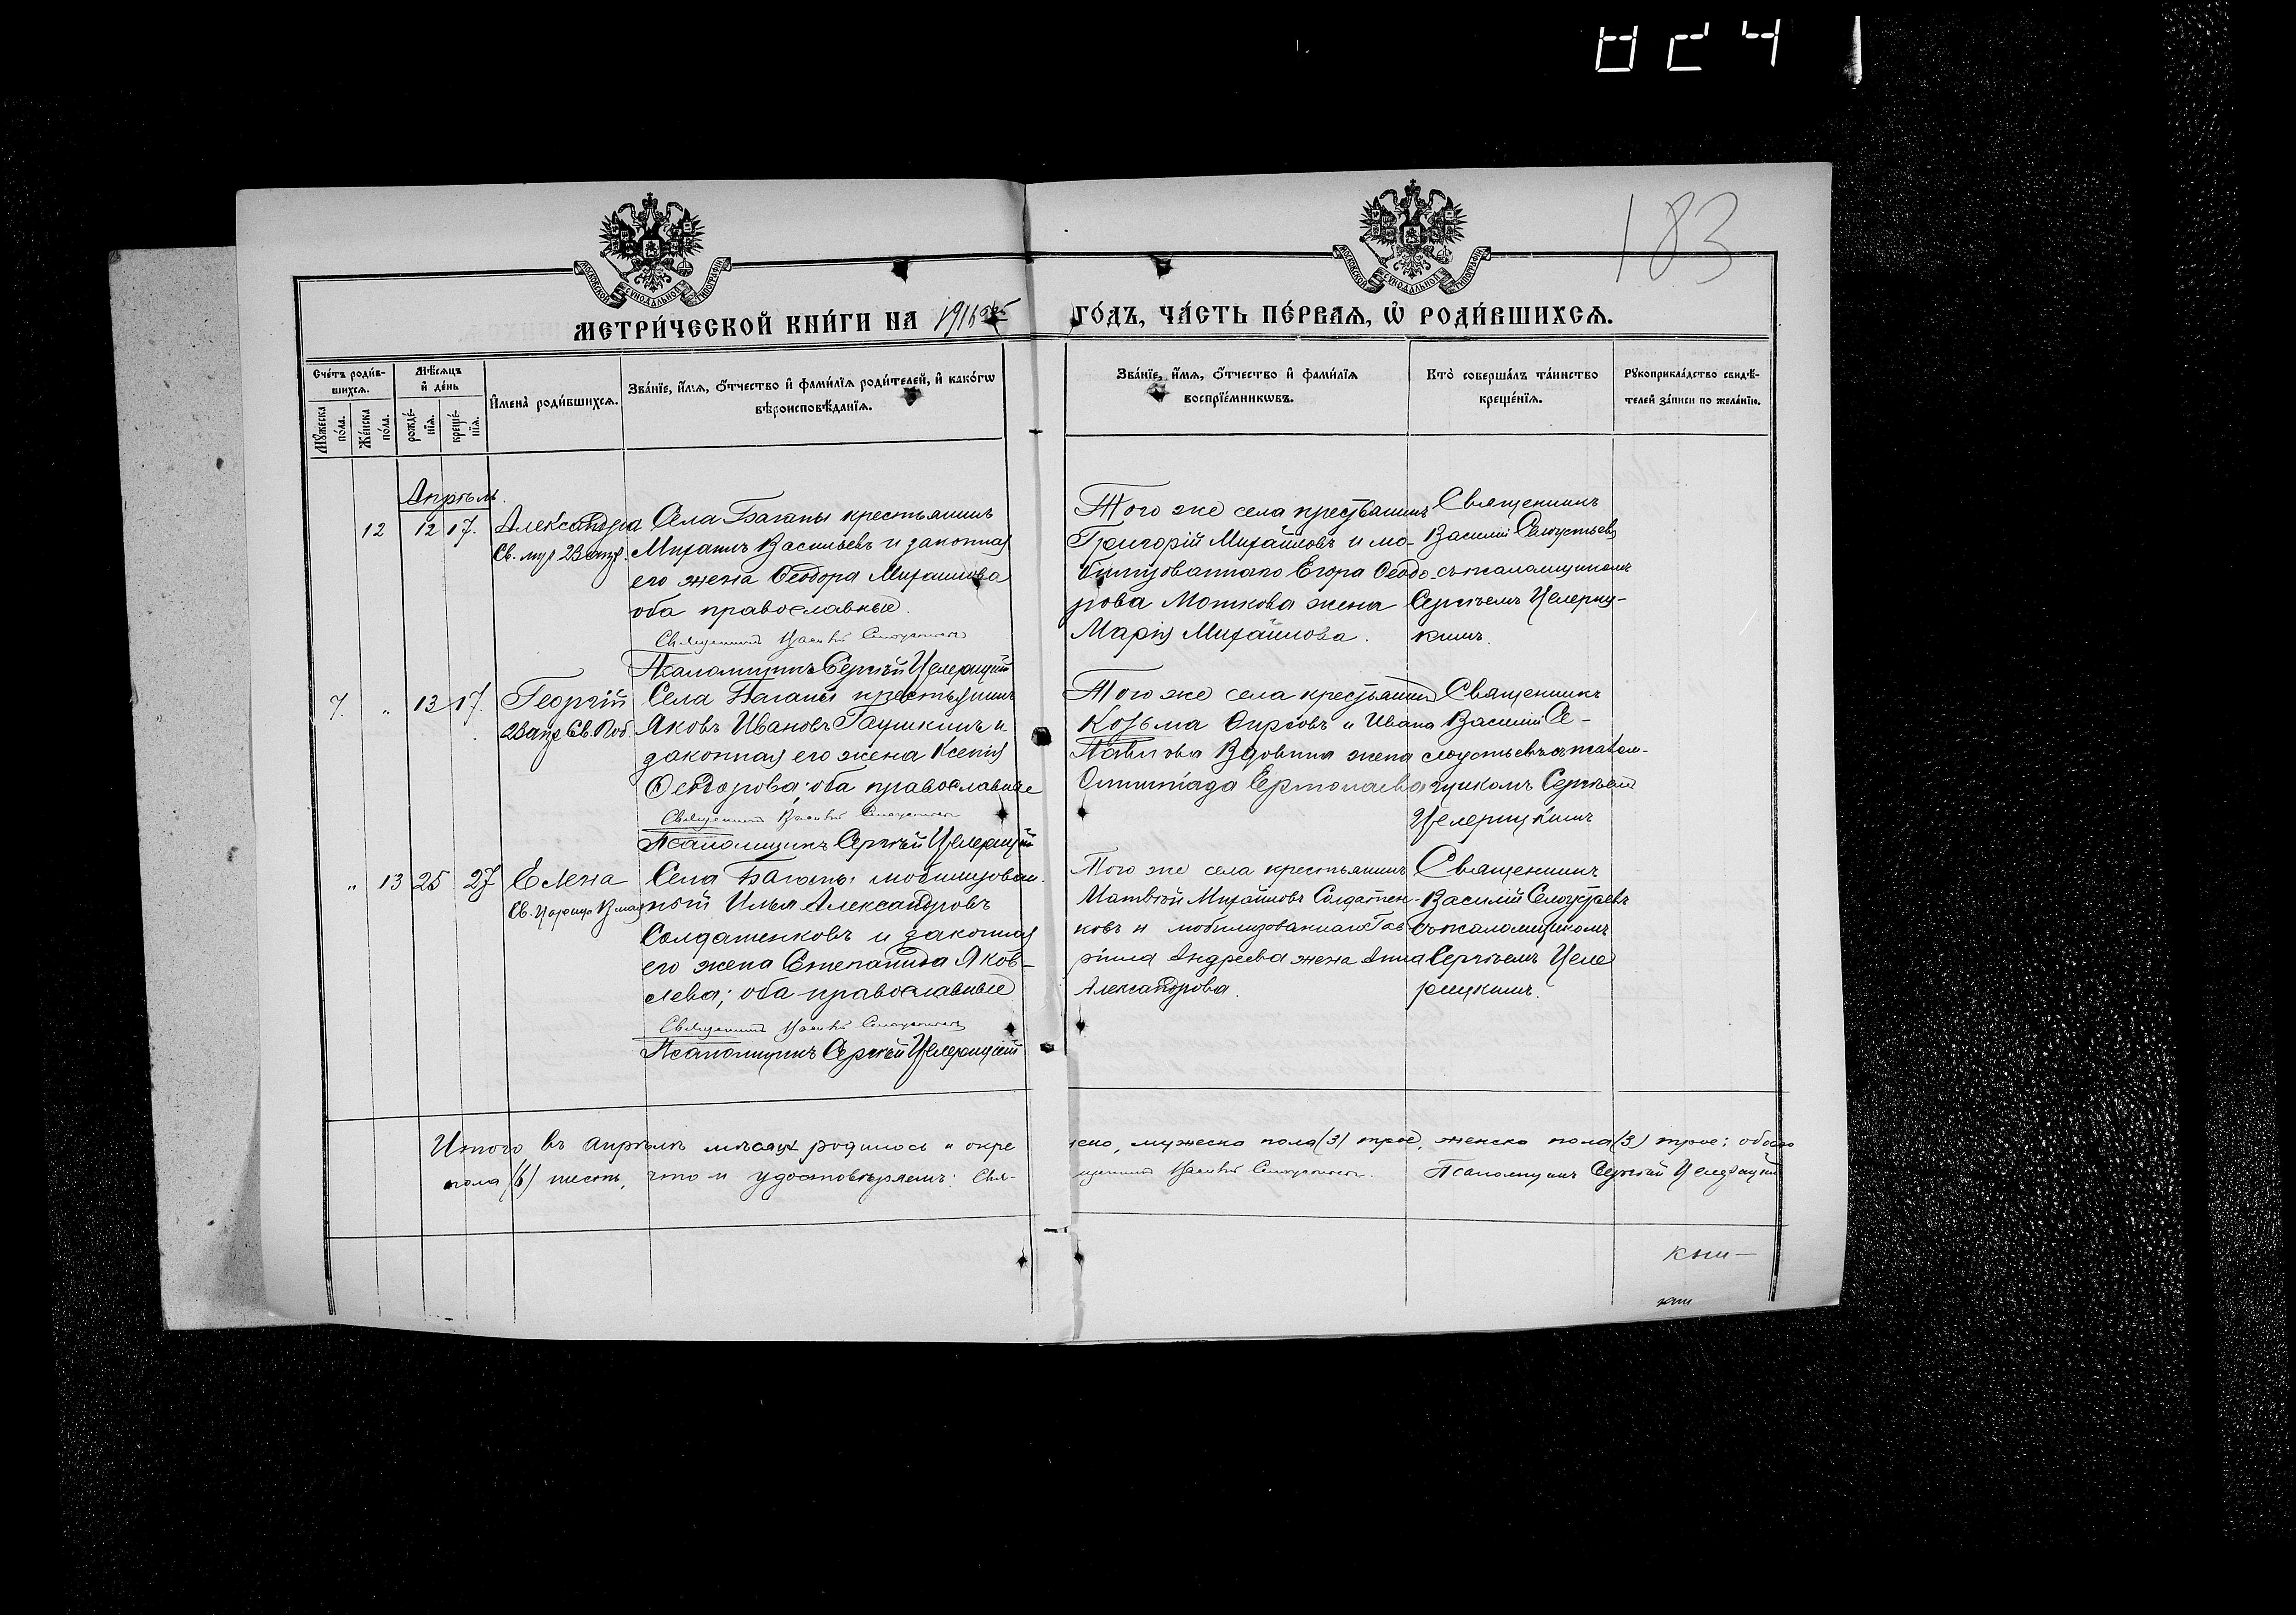 183
МОСКОВСКОЙ СУНОДАЛЬНОЙ ТИПОГРАФІИ
МОСКОВСКОЙ СУНОДАЛЬНОЙ ТИПОГРАФІИ
МЕТРИ́ЧЕСКОЙ КНИ́ГИ НА 1916 ГО́ДЪ, ЧА́СТЬ ПЕ́РВАѦ, Ѡ҆ РОДИ́ВШИХСѦ.
Сче́тъ роди́в-
шихсѧ.
Мꙋ́жеска по́ла.
Же́нска по́ла.
Мѣ́сѧцъ
и҆ де́нь
рожде́-
нїѧ.
креще́-
нїѧ.
И҆мена̀ роди́вшихсѧ.
Зва́нїе, и҆́мѧ, ѻ҆́тчество и҆ фами́лїѧ роди́телей, и҆ како́гѡ
вѣроисповѣ́данїѧ.
Зва́нїе, и҆́мѧ, ѻ҆́тчество и҆ фами́лїѧ
воспрїе́мникѡвъ.
Кто̀ соверша́лъ та́инство
креще́нїѧ.
Рꙋкоприкла́дство свидѣ́-
телей за́писи по жела́нїю.
Апрѣль.
12 12 17.
Александра
Св. муч 23 апр.
Села Баганы крестьянинъ
Михаилъ Васильевъ и законная
его жена Ѳеодора Михаилова
оба православные.
Священникъ Василій
Псаломщикъ Сергѣй Целерицкій
Того же села крестьянинъ
Григорій Михайловъ и мо-
билизованнаго Егора Ѳеодо-
рова Моткова жена
Марія Михайлова.
Священникъ
Василій Селоустьевъ
съ псаломщикомъ
Сергѣемъ Целериц-
кимъ.
7. „ 13 17.
Георгій
23 апр Св. Поб.
Села Баганы крестьянинъ
Яковъ Ивановъ Глушкинъ и
законная его жена Ксенія
Ѳеодорова; оба православные
Священникъ Василій
Псаломщикъ Сергѣй Целерицкій
Того же села крестьянинъ
Козьма Фирсовъ и Ивана
Павлова Вдовина жена
Олимпіада Ермолаева
Священникъ
Василій Се-
лоустьевъ съ псалом-
щикомъ Сергѣемъ
Целерицкимъ
„ 13 25 27
Елена
Св. Царица 21 мая
Села Баганы мобилизован-
ный Илья Александровъ
Солдатенковъ и законная
его жена Степанида Яков-
лева; оба православные
Священникъ Василій
Псаломщикъ Сергѣй Целерицкій
Того же села крестьянинъ
Матвѣй Михайловъ Солдатен-
ковъ и мобилизованнаго Гав
ріила Андреева жена Анна
Александрова.
Священникъ
Василій Селоустьевъ
съ псаломщикомъ
Сергѣемъ Целе
рицкимъ.
Итого въ апрѣлѣ мѣсяцѣ родилось и окре щено, мужеска пола (3) трое, женска пола (3) трое; обоего
пола (6) шесть, что и удостовѣряемъ: Свя- щенникъ Василій Псаломщикъ Сергѣй Целерицкій